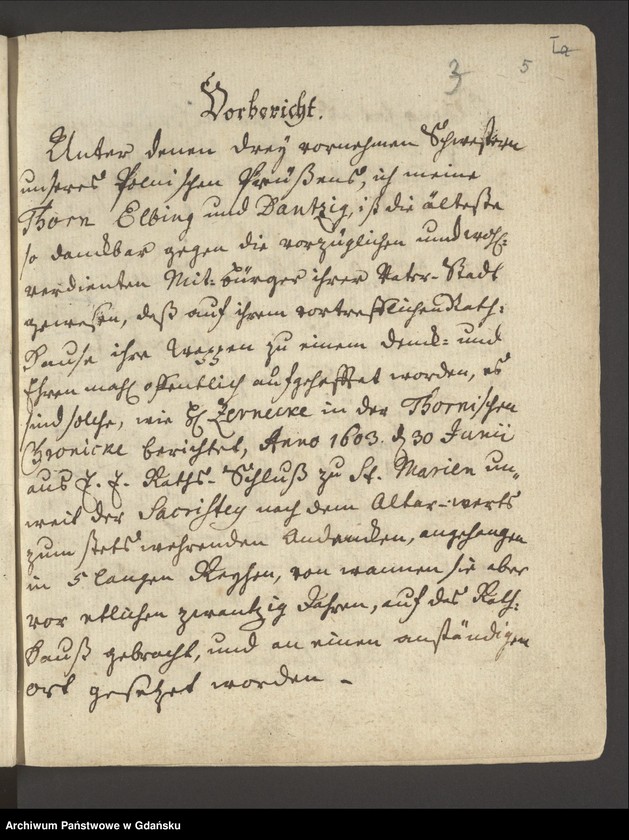 3 5 Ia
Vorbericht.
Unter denen drey vornehmen Schwestern
unseres Polnischen Preüßens, ich meine
Thorn Elbing und Dantzig, ist die älteste
so danckbar gegen die vorzüglichen und wohl-
verdienten Mit-bürger ihrer Vater-Stadt
gewesen, daß auf ihrem vortrefflichen Rath-
Hause ihre Wappen zu einem Denck- und
Ehren mahl offentlich aufgehefftet worden, es
sind solche, wie H. Zernecke in der Thornischen
Chronicke berichtet, Anno 1603. d 30 Junii
aus E. E. Raths-Schluß zu St. Marien un-
weit der Sacristey nach dem Altar-werts
zum stets wehrenden Andencken, angehangen
in 5 langen Reyhen, von wannen sie aber
vor etlichen zwantzig Jahren, auf das Rath-
Hauß gebracht, und an einen anständigen
Ort gesetzet worden -
Archiwum Państwowe w Gdańsku